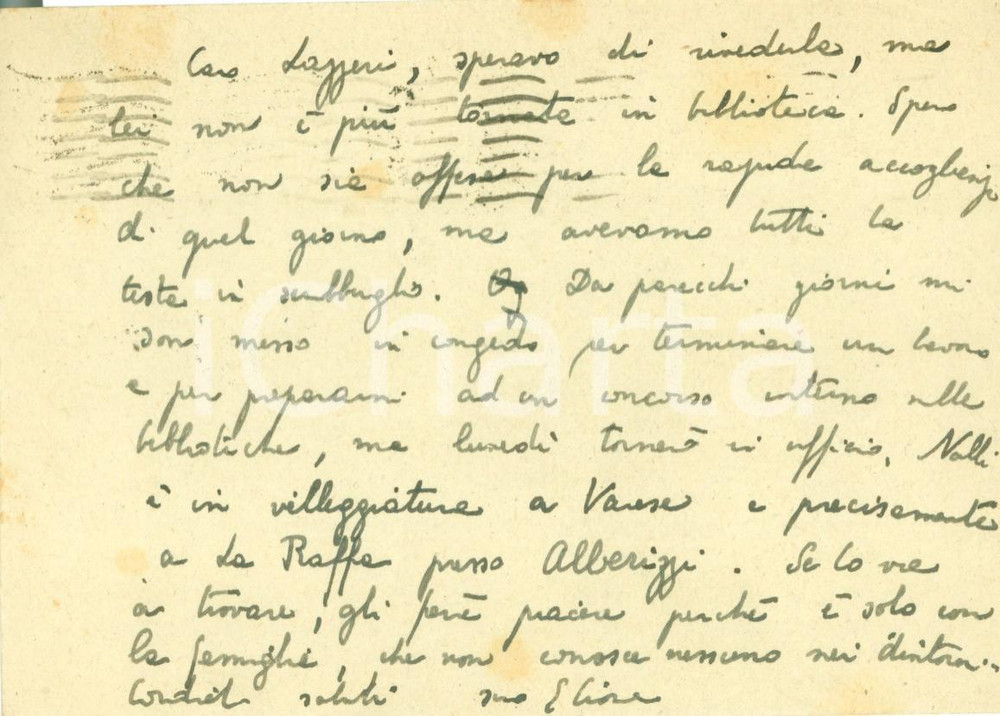 Caro Lazzeri, speravo di rivederla, ma
lei non è più tornata in biblioteca. Spero
che non sia offesa per la rapida accoglienza
di quel giorno, ma avevamo tutti la
testa in subbuglio. Da parecchi giorni mi
son messo in congedo per terminare un lavoro
e per prepararmi ad un concorso interno nelle
biblioteche, ma lunedì tornerò in ufficio. Nalli
è in villeggiatura a Varese e precisamente
a La Raffa presso Alberizzi. Se lo va
a trovare, gli farà piacere perché è solo con
la famiglia, che non conosce nessuno nei dintorni.
Cordiali saluti suo
iCharta